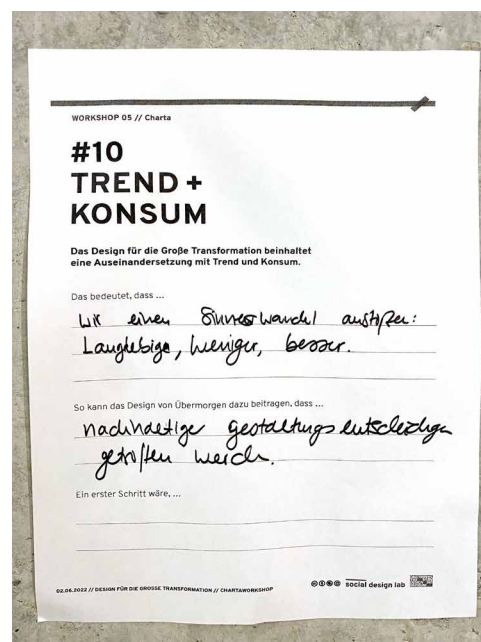 WORKSHOP 05 // Charta
#10
TREND +
KONSUM
Das Design für die Große Transformation beinhaltet
eine Auseinandersetzung mit Trend und Konsum.
Das bedeutet, dass ...
wir einen Sinneswandel anstiften:
Langlebiger, weniger, besser.
So kann das Design von Übermorgen dazu beitragen, dass ...
nachhaltige Gestaltungsentscheidungen
getroffen werden.
Ein erster Schritt wäre, ...
02.06.2022 // DESIGN FÜR DIE GROSSE TRANSFORMATION // CHARTAWORKSHOP
social design lab